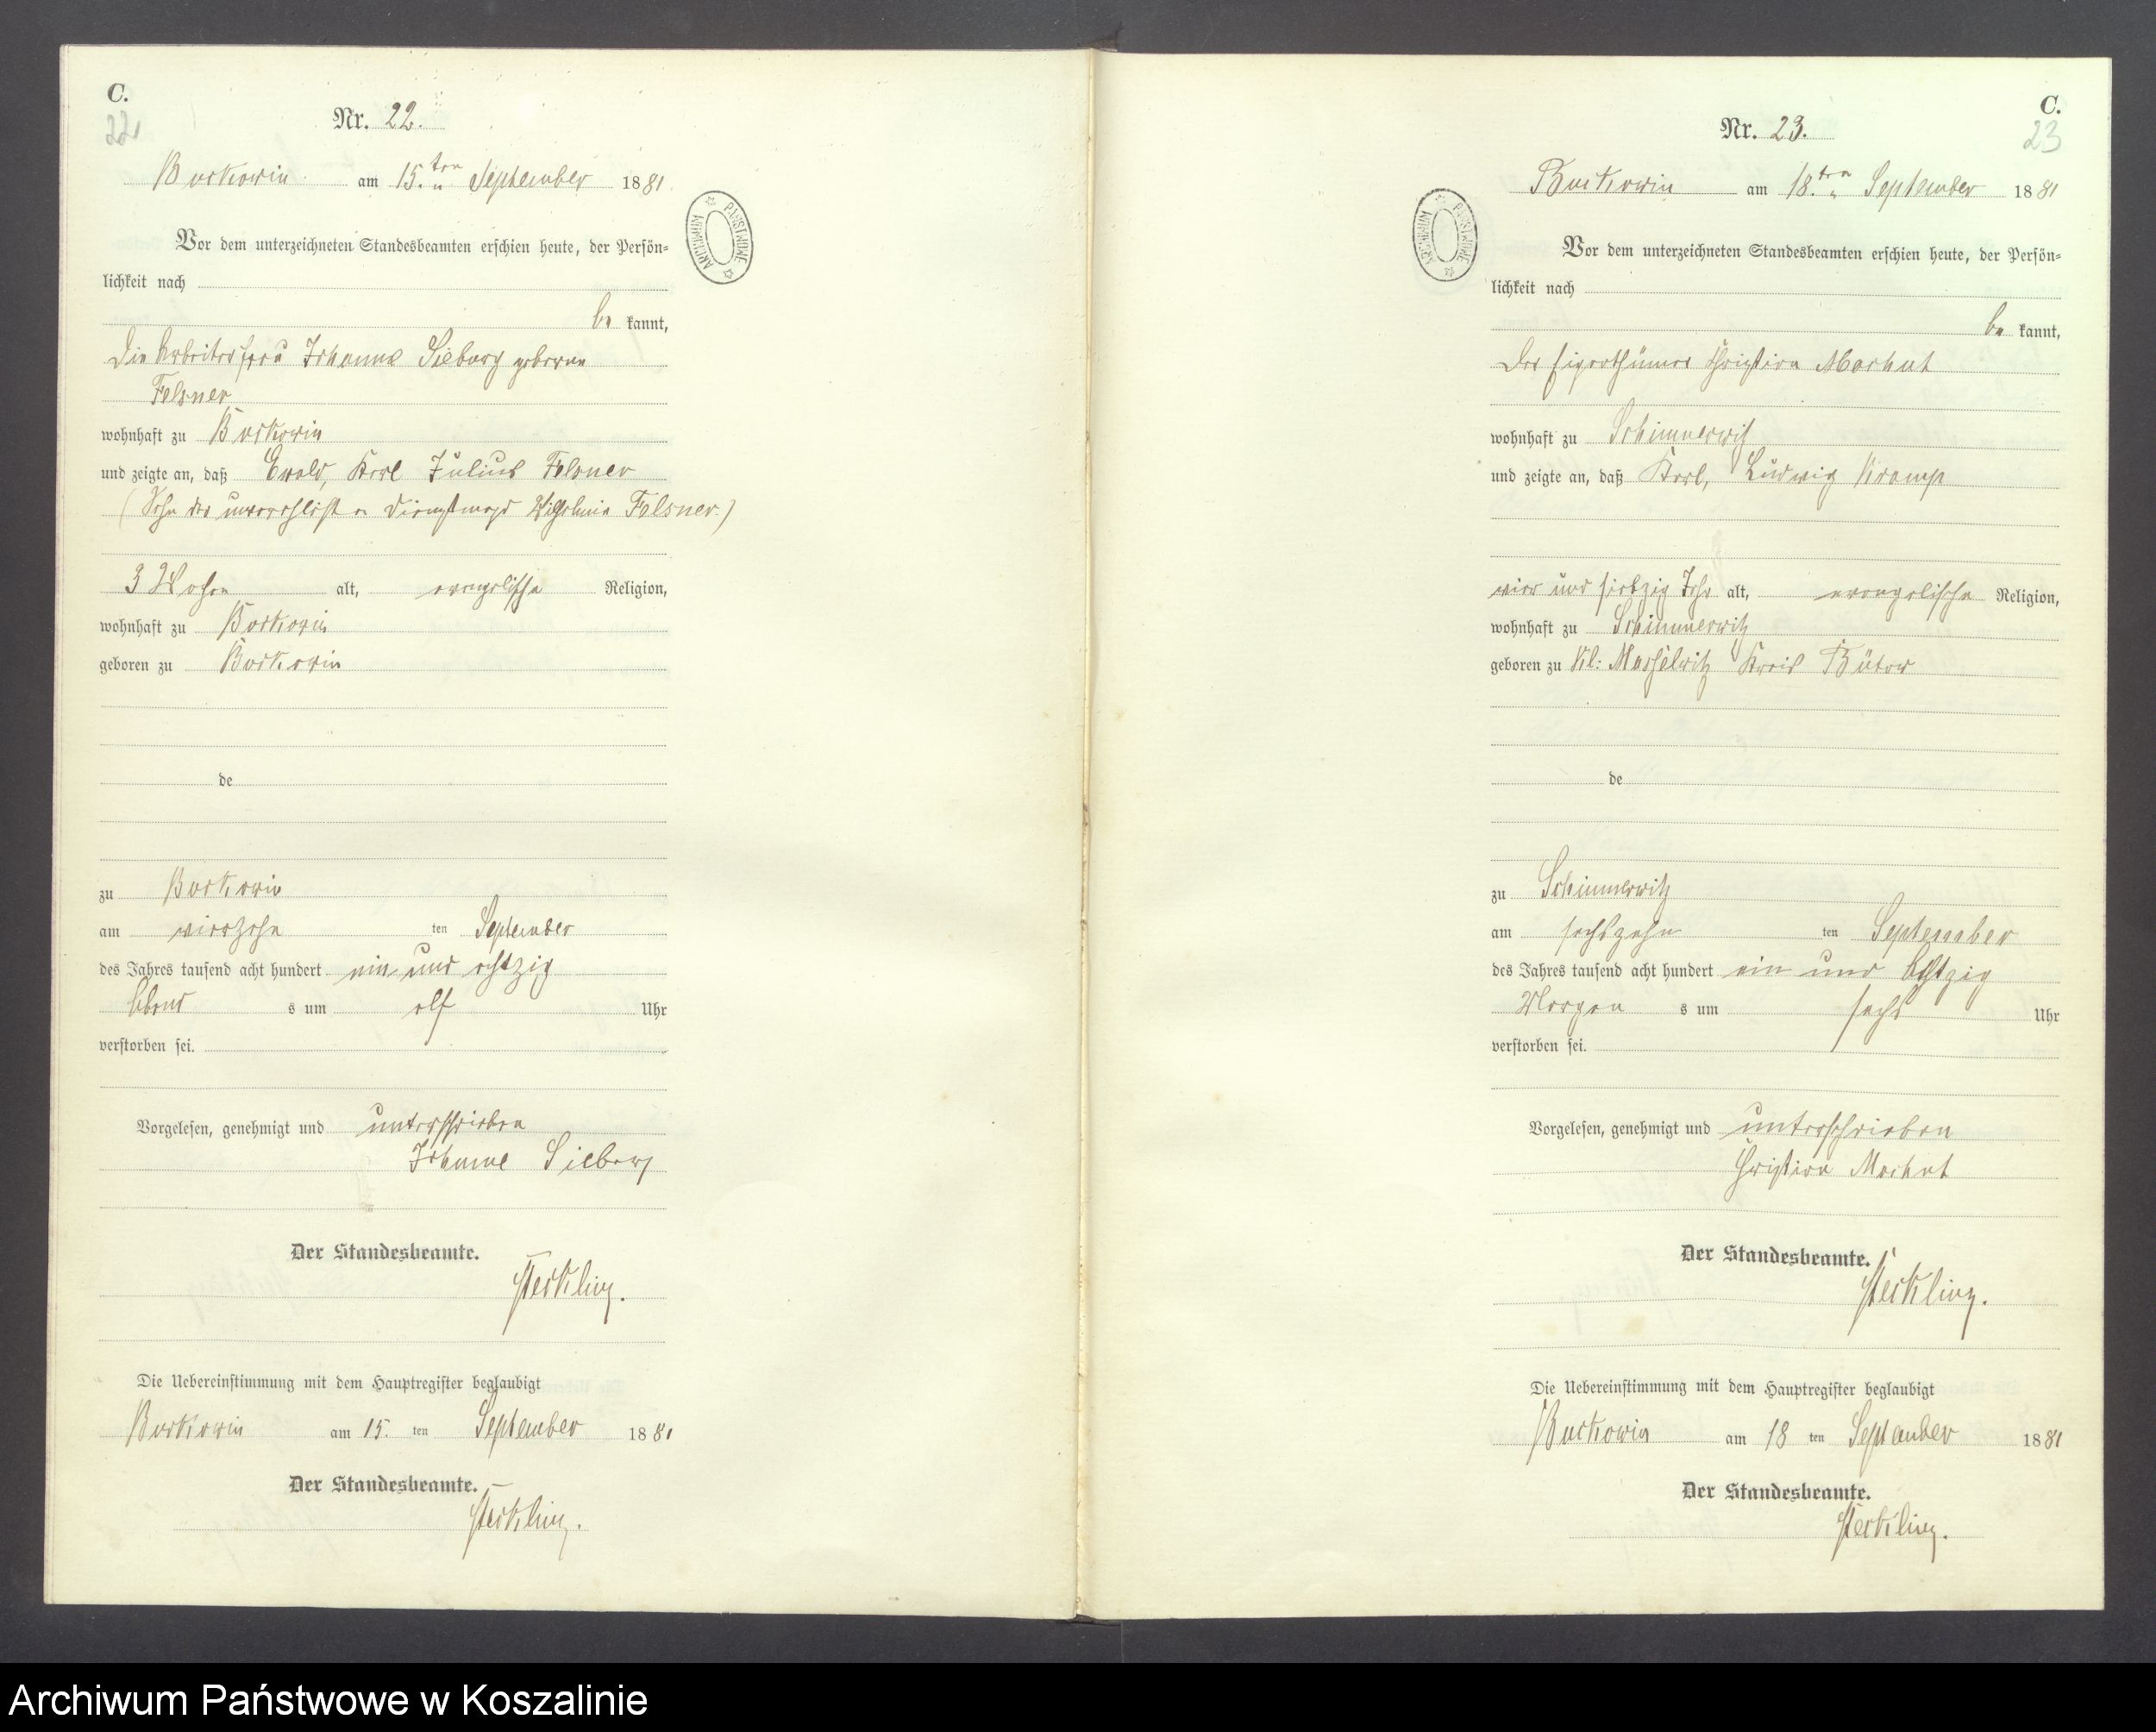 C.
22
Nr. 22.
Burkowin am 15.ten September 1881.
Vor dem unterzeichneten Standesbeamten erschien heute, der Persön=
lichkeit nach
be kannt,
die Arbeiterfrau Johanne Sieburg geborene
Felsner
wohnhaft zu Burkowin
und zeigte an, daß Ewald, Karl Julius Felsner
(Sohn der unverehelichten Dienstmagd Wilhelmine Felsner.)
3 Wochen alt, evangelische Religion,
wohnhaft zu Burkowin
geboren zu Burkowin
de
zu Burkowin
am vierzehn ten September
des Jahres tausend acht hundert ein und achtzig
Abend s um elf Uhr
verstorben sei.
Vorgelesen, genehmigt und unterschrieben
Johanne Sieburg
Der Standesbeamte.
Die Uebereinstimmung mit dem Hauptregister beglaubigt
Burkowin am 15. ten September 1881
Der Standesbeamte.
ARCHIWUM PAŃSTWOWE
C.
23
Nr. 23.
Burkowin am 18.ten September 1881
Vor dem unterzeichneten Standesbeamten erschien heute, der Persön=
lichkeit nach
be kannt,
der Eigenthümer Christian Machut
wohnhaft zu Schimmerwitz
und zeigte an, daß Karl, Ludwig Kramp
vier und siebzig Jahr alt, evangelische Religion,
wohnhaft zu Schimmerwitz
geboren zu Kl: Massowitz Kreis Bütow
de
zu Schimmerwitz
am sechszehn ten September
des Jahres tausend acht hundert ein und Achtzig
Morgen s um sechs Uhr
verstorben sei.
Vorgelesen, genehmigt und unterschrieben
Christian Machut
Der Standesbeamte.
Die Uebereinstimmung mit dem Hauptregister beglaubigt
Burkowin am 18 ten September 1881
Der Standesbeamte.
ARCHIWUM PAŃSTWOWE
Archiwum Państwowe w Koszalinie